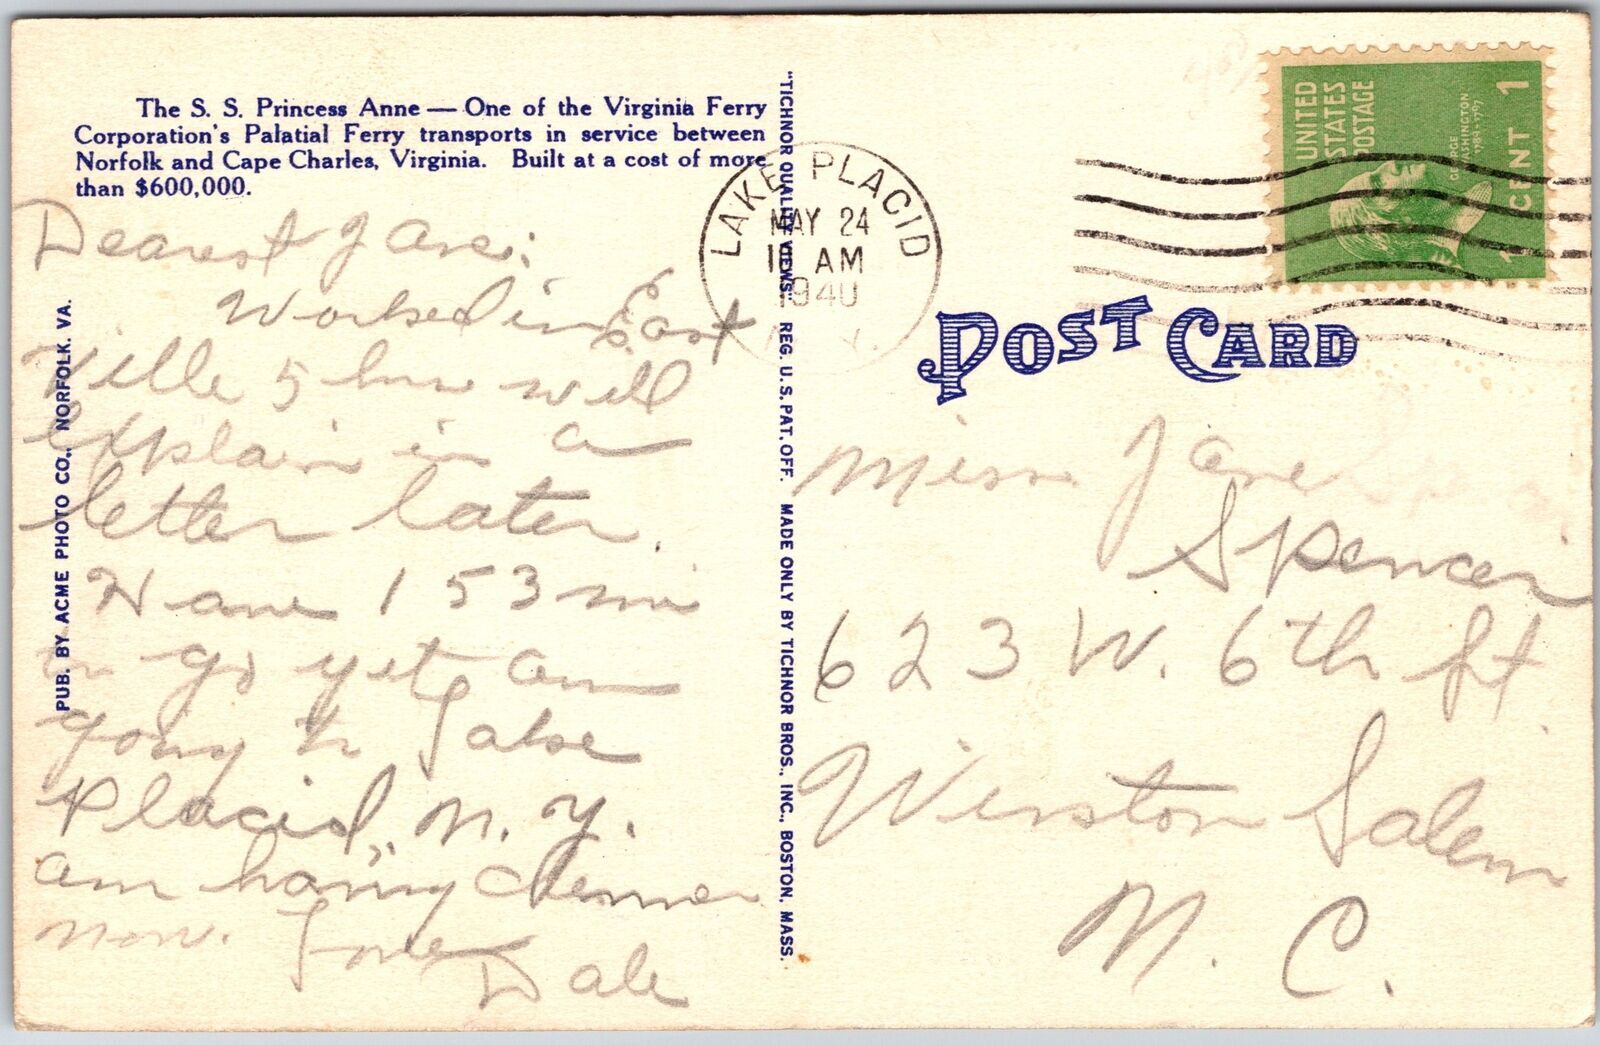 The S. S. Princess Anne — One of the Virginia Ferry
Corporation's Palatial Ferry transports in service between
Norfolk and Cape Charles, Virginia. Built at a cost of more
than $600,000.
Dearest Jane:
Worked in East
Ville 5 hrs will
explain in a
letter later.
Have 153 mi
to go yet am
going to Lake
Placid, N.Y.
am having dinner
now. Love
Dale
PUB. BY ACME PHOTO CO., NORFOLK, VA.
"TICHNOR QUALITY VIEWS," REG. U. S. PAT. OFF. MADE ONLY BY TICHNOR BROS., INC., BOSTON, MASS.
LAKE PLACID
MAY 24
10 AM
1940
N.Y.
UNITED
STATES
POSTAGE
GEORGE
WASHINGTON
1789-1797
1 CENT 1
POST CARD
Miss Jane
Spencer
623 W. 6th St.
Winston Salem
N. C.